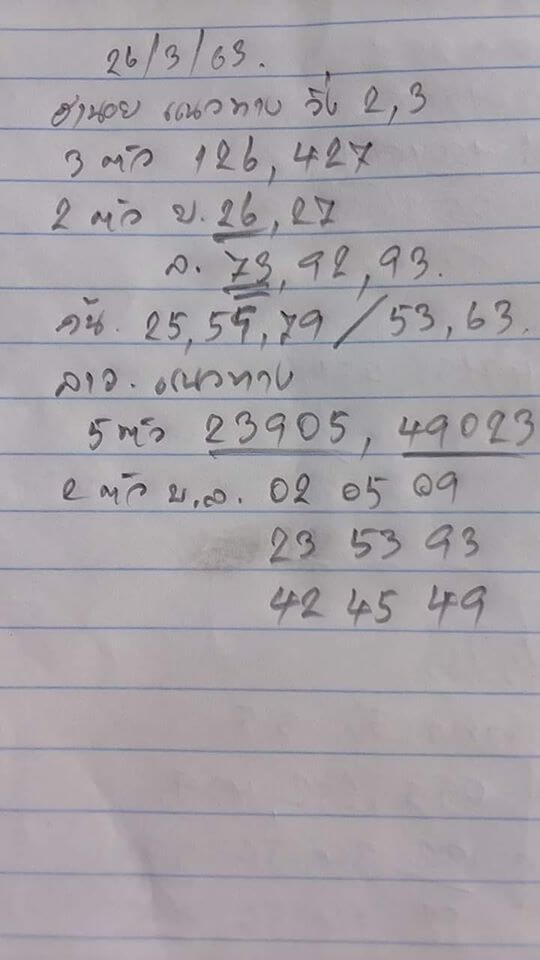 26/3/63.
ฮานอย แนวทาง วิ่ง 2,3
3 ตัว 126, 427
2 ตัว บ. 26, 27
ล. 73, 92, 93.
กัน. 25, 55, 79 / 53, 63.
ลาว. แนวทาง
5 ตัว 23905, 49023
2 ตัว บ.ล. 02 05 09
23 53 93
42 45 49